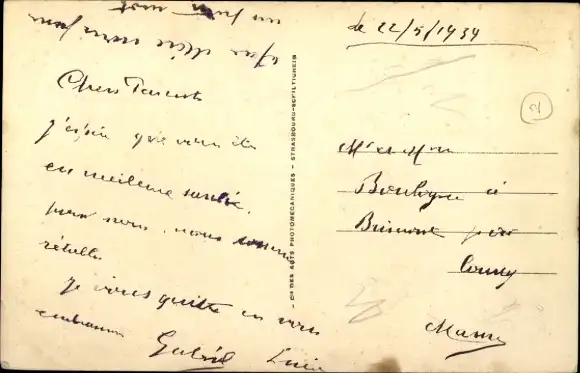 le 22/5/1939
Chers Parents
j'espère que vous êtes
en meilleure santée,
pour nous, nous sommes
rétablis
je vous quitte en vous
embrassan
Gabriel Lucie
un petit mot
Cie DES ARTS PHOTOMECANIQUES - STRASBOURG-SCHILTIGHEIM
2
Mr et Mme
Boulogne à
Brimont par
Courcy
Marne